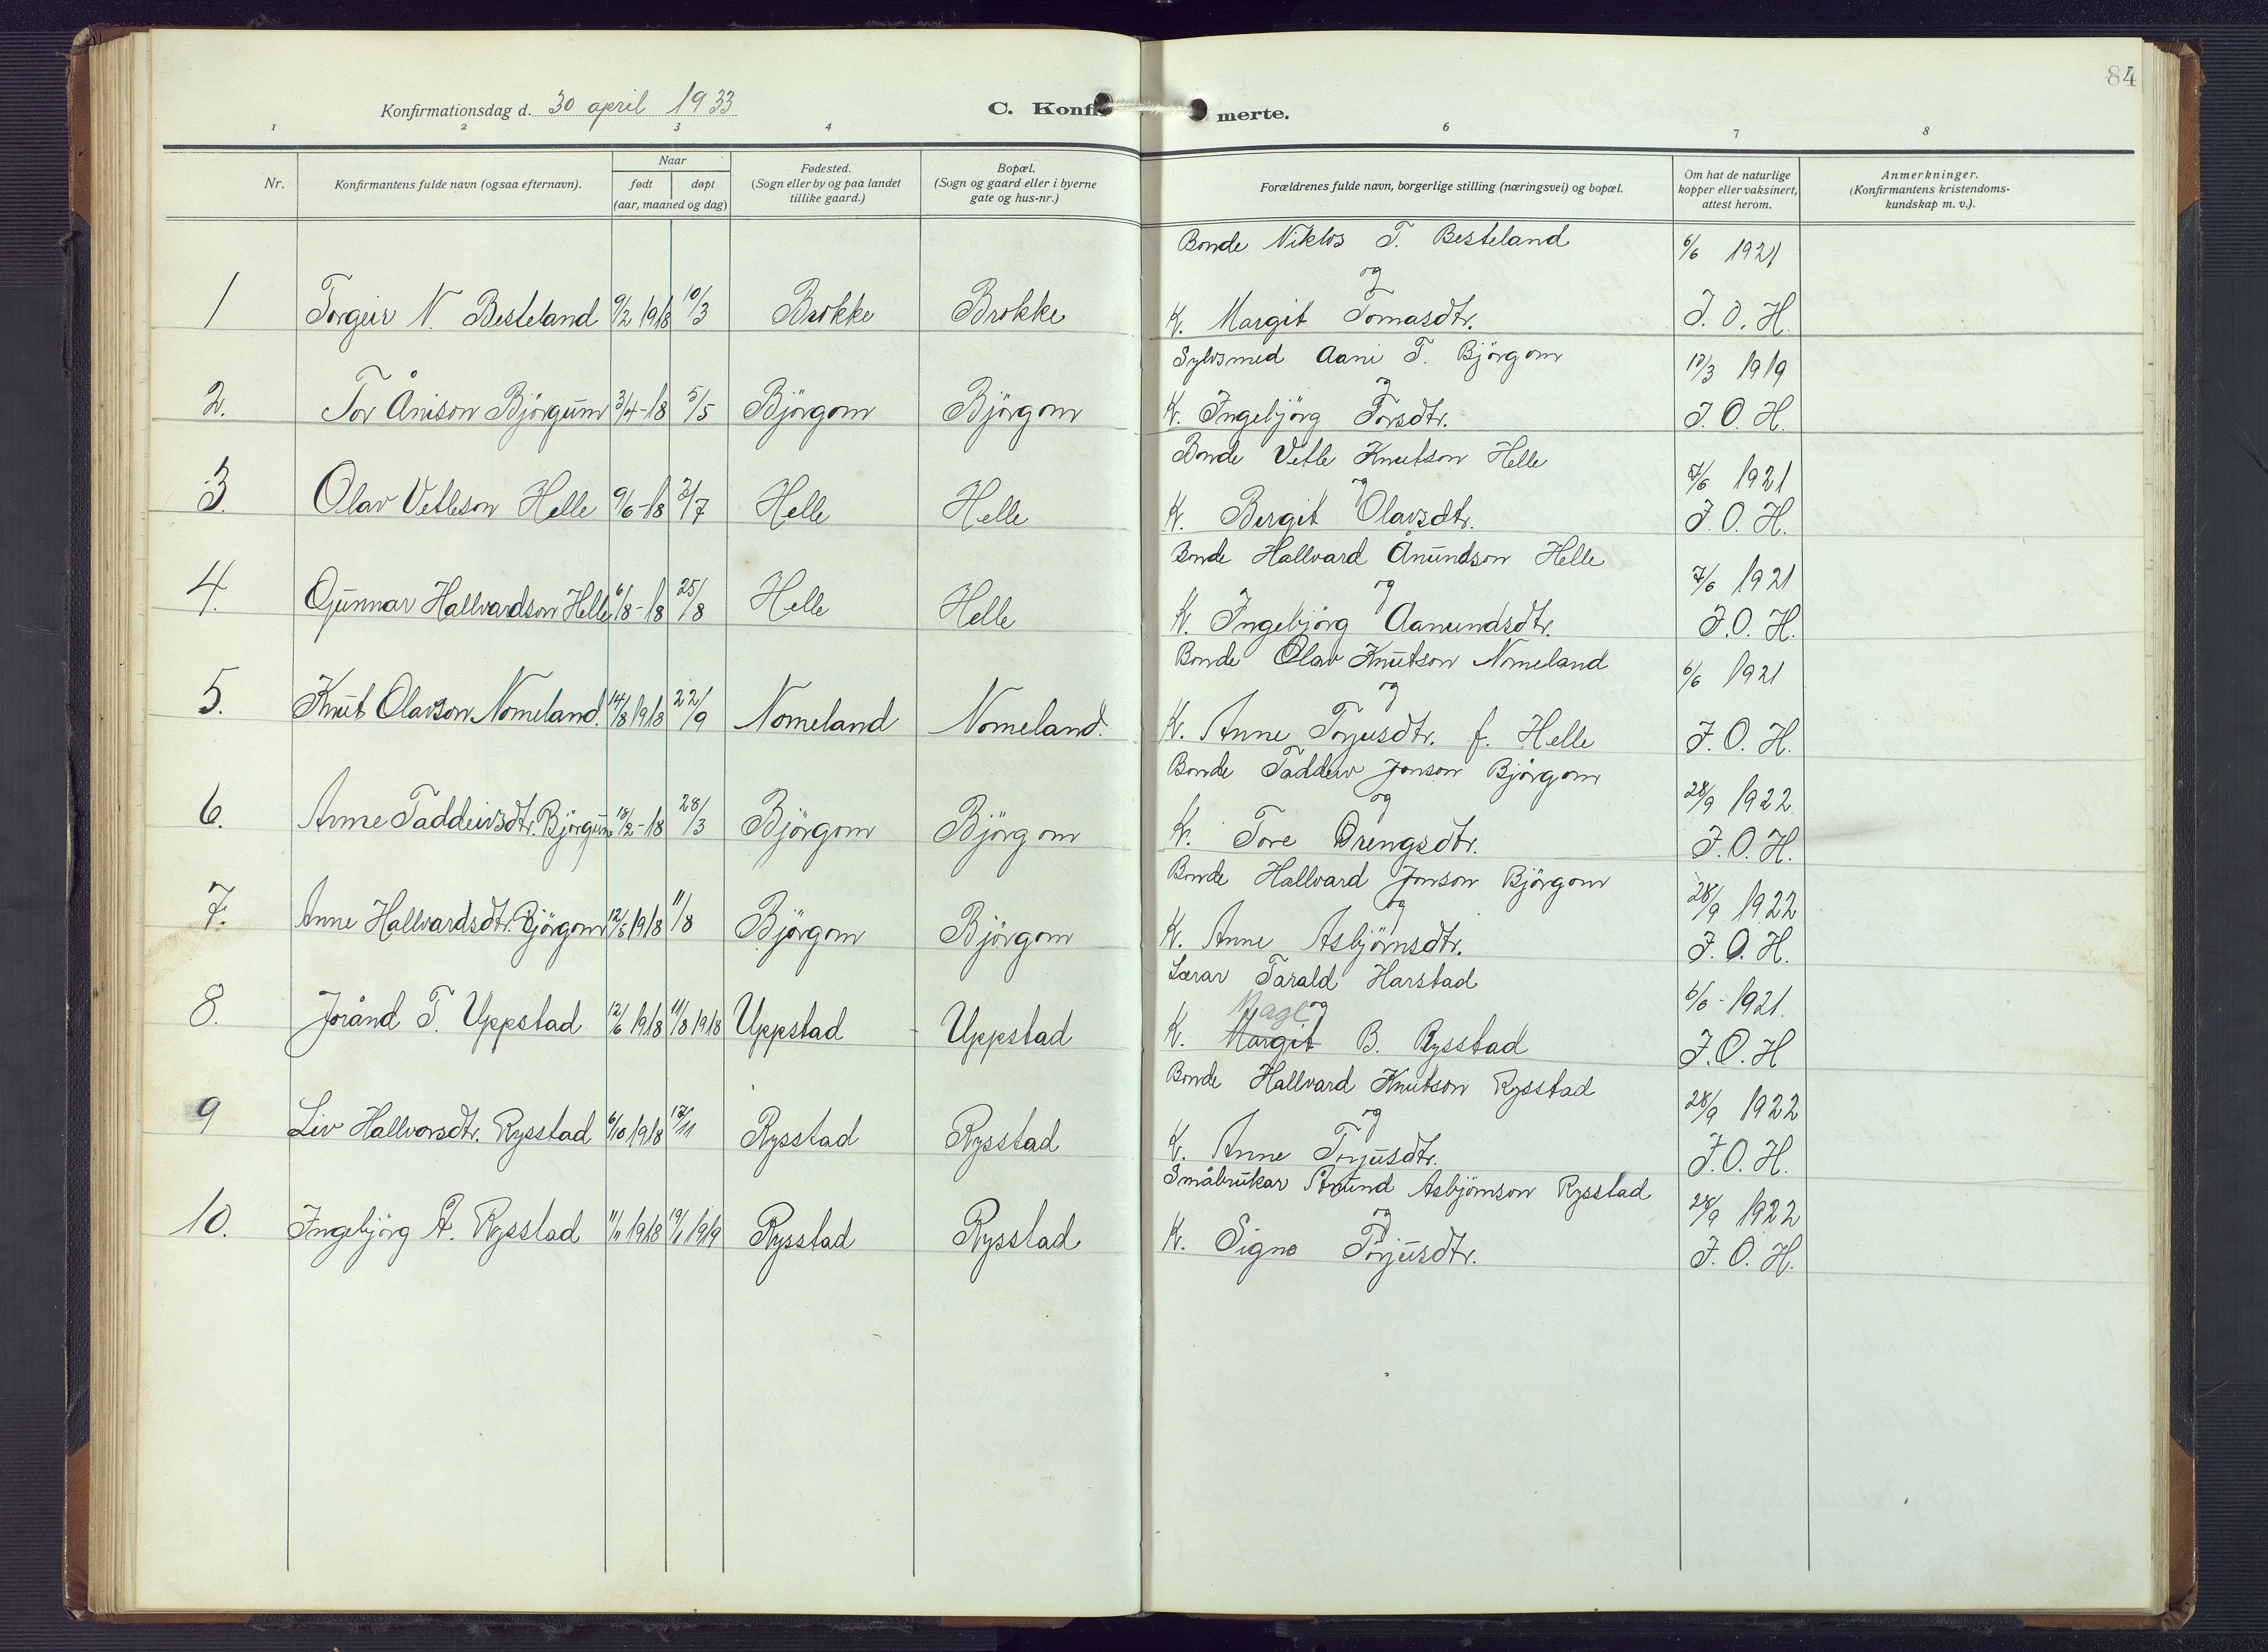 84
Konfirmationsdag d. 30 april 1933
C. Konfir merte.
1 2 3 4 6 7 8
Nr.
Konfirmantens fulde navn (ogsaa efternavn).
Naar
født døpt
(aar, maaned og dag)
Fødested.
(Sogn eller by og paa landet
tillike gaard.)
Bopæl.
(Sogn og gaard eller i byerne
gate og hus-nr.)
Forældrenes fulde navn, borgerlige stilling (næringsvei) og bopæl.
Om hat de naturlige
kopper eller vaksinert,
attest herom.
Anmerkninger.
(Konfirmantens kristendoms-
kundskap m. v.).
Bonde Niklos T. Besteland 6/6 1921
og
1 Torgeir N. Besteland 9/2 1918 10/3 Brokke Brokke K. Margit Tomasdtr. J. O. H.
Sylvsmed Aani T. Björgom 10/3 1919
og
2. Tor Ånison Björgum 3/4-18 5/5 Björgom Björgom K. Ingebjörg Torsdtr. J. O. H.
Bonde Vetle Knutson Helle 7/6 1921
og
3. Olav Vetleson Helle 9/6-18 3/7 Helle Helle K. Bergit Olavsdtr. J. O. H.
Bonde Hallvard Ånundson Helle 7/6 1921
og
4. Gunnar Hallvardson Helle 6/8-18 25/8 Helle Helle K. Ingebjörg Aanundsdtr. J. O. H.
Bonde Olav Knutson Nomeland 6/6 1921
og
5. Knut Olavson Nomeland. 14/8 1918 22/9 Nomeland Nomeland. K. Anne Torjusdtr. f. Helle J. O. H.
Bonde Taddeiv Jonson Björgom 28/9 1922
og
6. Anne Taddeivsdtr. Björgum 18/2-18 28/3 Björgom Björgom K. Tore Drengsdtr. J. O. H.
Bonde Hallvard Jonson Björgom 28/9 1922
og
7. Anne Hallvardsdtr. Björgom 12/5 1918 11/8 Björgom Björgom K. Anne Asbjörnsdtr. J. O. H.
Lærar Tarald Harstad 6/6-1921.
Magl og
8. Jorånd T. Uppstad 12/6 1918 11/8 1918 Uppstad - Uppstad K. Margit B. Rysstad J. O. H
Bonde Hallvard Knutson Rysstad 28/9 1922
og
9 Liv Hallvorsdtr. Rysstad 6/10 1918 17/11 Rysstad Rysstad K. Anne Torjusdtr. J. O. H.
Småbrukar Ånund Asbjörnson Rysstad 28/9 1922
og
10. Ingebjörg Å. Rysstad 11/11 1918 19/1 1919 Rysstad Rysstad K. Signe Torjusdtr. J. O. H.